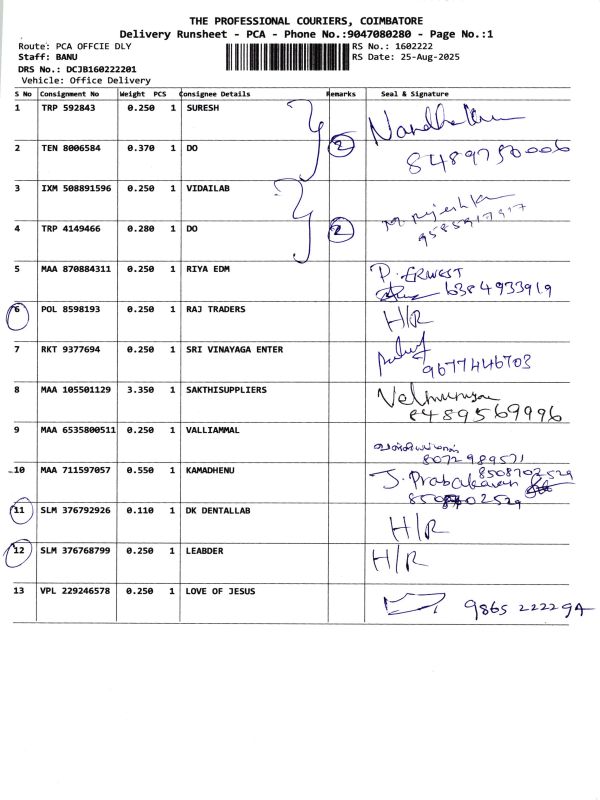 THE PROFESSIONAL COURIERS, COIMBATORE
Delivery Runsheet - PCA - Phone No.:9047080280 - Page No.:1
Route: PCA OFFCIE DLY RS No.: 1602222
Staff: BANU RS Date: 25-Aug-2025
DRS No.: DCJB160222201
Vehicle: Office Delivery
S No Consignment No Weight PCS Consignee Details Remarks Seal & Signature
1 TRP 592843 0.250 1 SURESH
2 TEN 8006584 0.370 1 DO 2 8489750006
3 IXM 508891596 0.250 1 VIDAILAB
4 TRP 4149466 0.280 1 DO 2 9585917917
5 MAA 870884311 0.250 1 RIYA EDM P. ERWEST
6384933919
6 POL 8598193 0.250 1 RAJ TRADERS H/R
7 RKT 9377694 0.250 1 SRI VINAYAGA ENTER
9677446703
8 MAA 105501129 3.350 1 SAKTHISUPPLIERS Velmurugan
8489569996
9 MAA 6535800511 0.250 1 VALLIAMMAL
8072989571
10 MAA 711597057 0.550 1 KAMADHENU J. Prabakaran 8508702529
11 SLM 376792926 0.110 1 DK DENTALLAB H/R
12 SLM 376768799 0.250 1 LEABDER H/R
13 VPL 229246578 0.250 1 LOVE OF JESUS 9865 222294